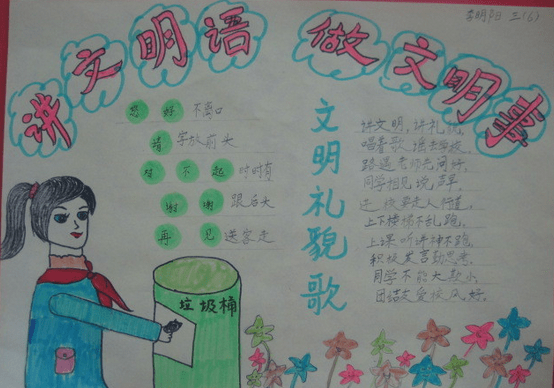 讲文明语 做文明事
李明阳 三(6)
您好不离口
请字放前头
对不起时时有
谢谢跟后头
再见送客走
垃圾桶
文明礼貌歌
讲文明,讲礼貌,
唱着歌去学校,
路遇老师先问好,
同学相见说声早,
校要走人行道,
上下楼梯不乱跑,
上课听讲神不跑,
积极发言勤思考,
同学不能大欺小,
团结友爱校风好。